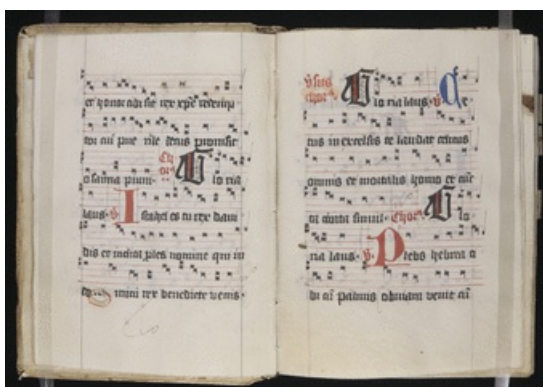 et honor tibi sit rex xpe redemp
tor cui pue rile decus prompsit
osanna pium. Glo ria
laus. Israhel es tu rex daui
dis et inclita ples nomine qui in
do mini rex benedicte venis.
Glo ria laus. Ce
tus in excelsis te laudat celicus
omnis et mortalis homo et cūc
ta creata simul. Chor Glo
ria laus. Plebs hebrea ti
bi cū palmis obuiam venit cū